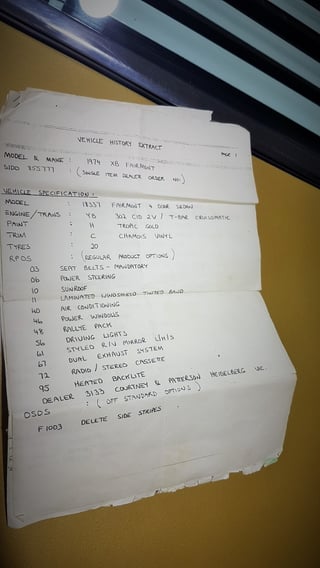 VEHICLE HISTORY EXTRACT
PAGE 1
MODEL & MAKE : 1974 XB FAIRMONT
SIDO 355777 : (SINGLE ITEM DEALER ORDER NO.)
VEHICLE SPECIFICATION :
MODEL : 18337 FAIRMONT 4 DOOR SEDAN
ENGINE/TRANS : YB 302 CID 2V / T-BAR CRUISOMATIC
PAINT : H TROPIC GOLD
TRIM : C CHAMOIS VINYL
TYRES : 20
RPOS : (REGULAR PRODUCT OPTIONS)
03 SEAT BELTS - MANDATORY
06 POWER STEERING
10 SUNROOF
11 LAMINATED WINDSHIELD TINTED BAND
40 AIR CONDITIONING
46 POWER WINDOWS
48 RALLYE PACK
56 DRIVING LIGHTS
61 STYLED R/V MIRROR L/H/S
67 DUAL EXHAUST SYSTEM
72 RADIO / STEREO CASSETTE
95 HEATED BACKLITE
DEALER 3133 COURTNEY & PATTERSON HEIDELBERG VIC.
OSOS : (OFF STANDARD OPTIONS)
F1003 DELETE SIDE STRIPES